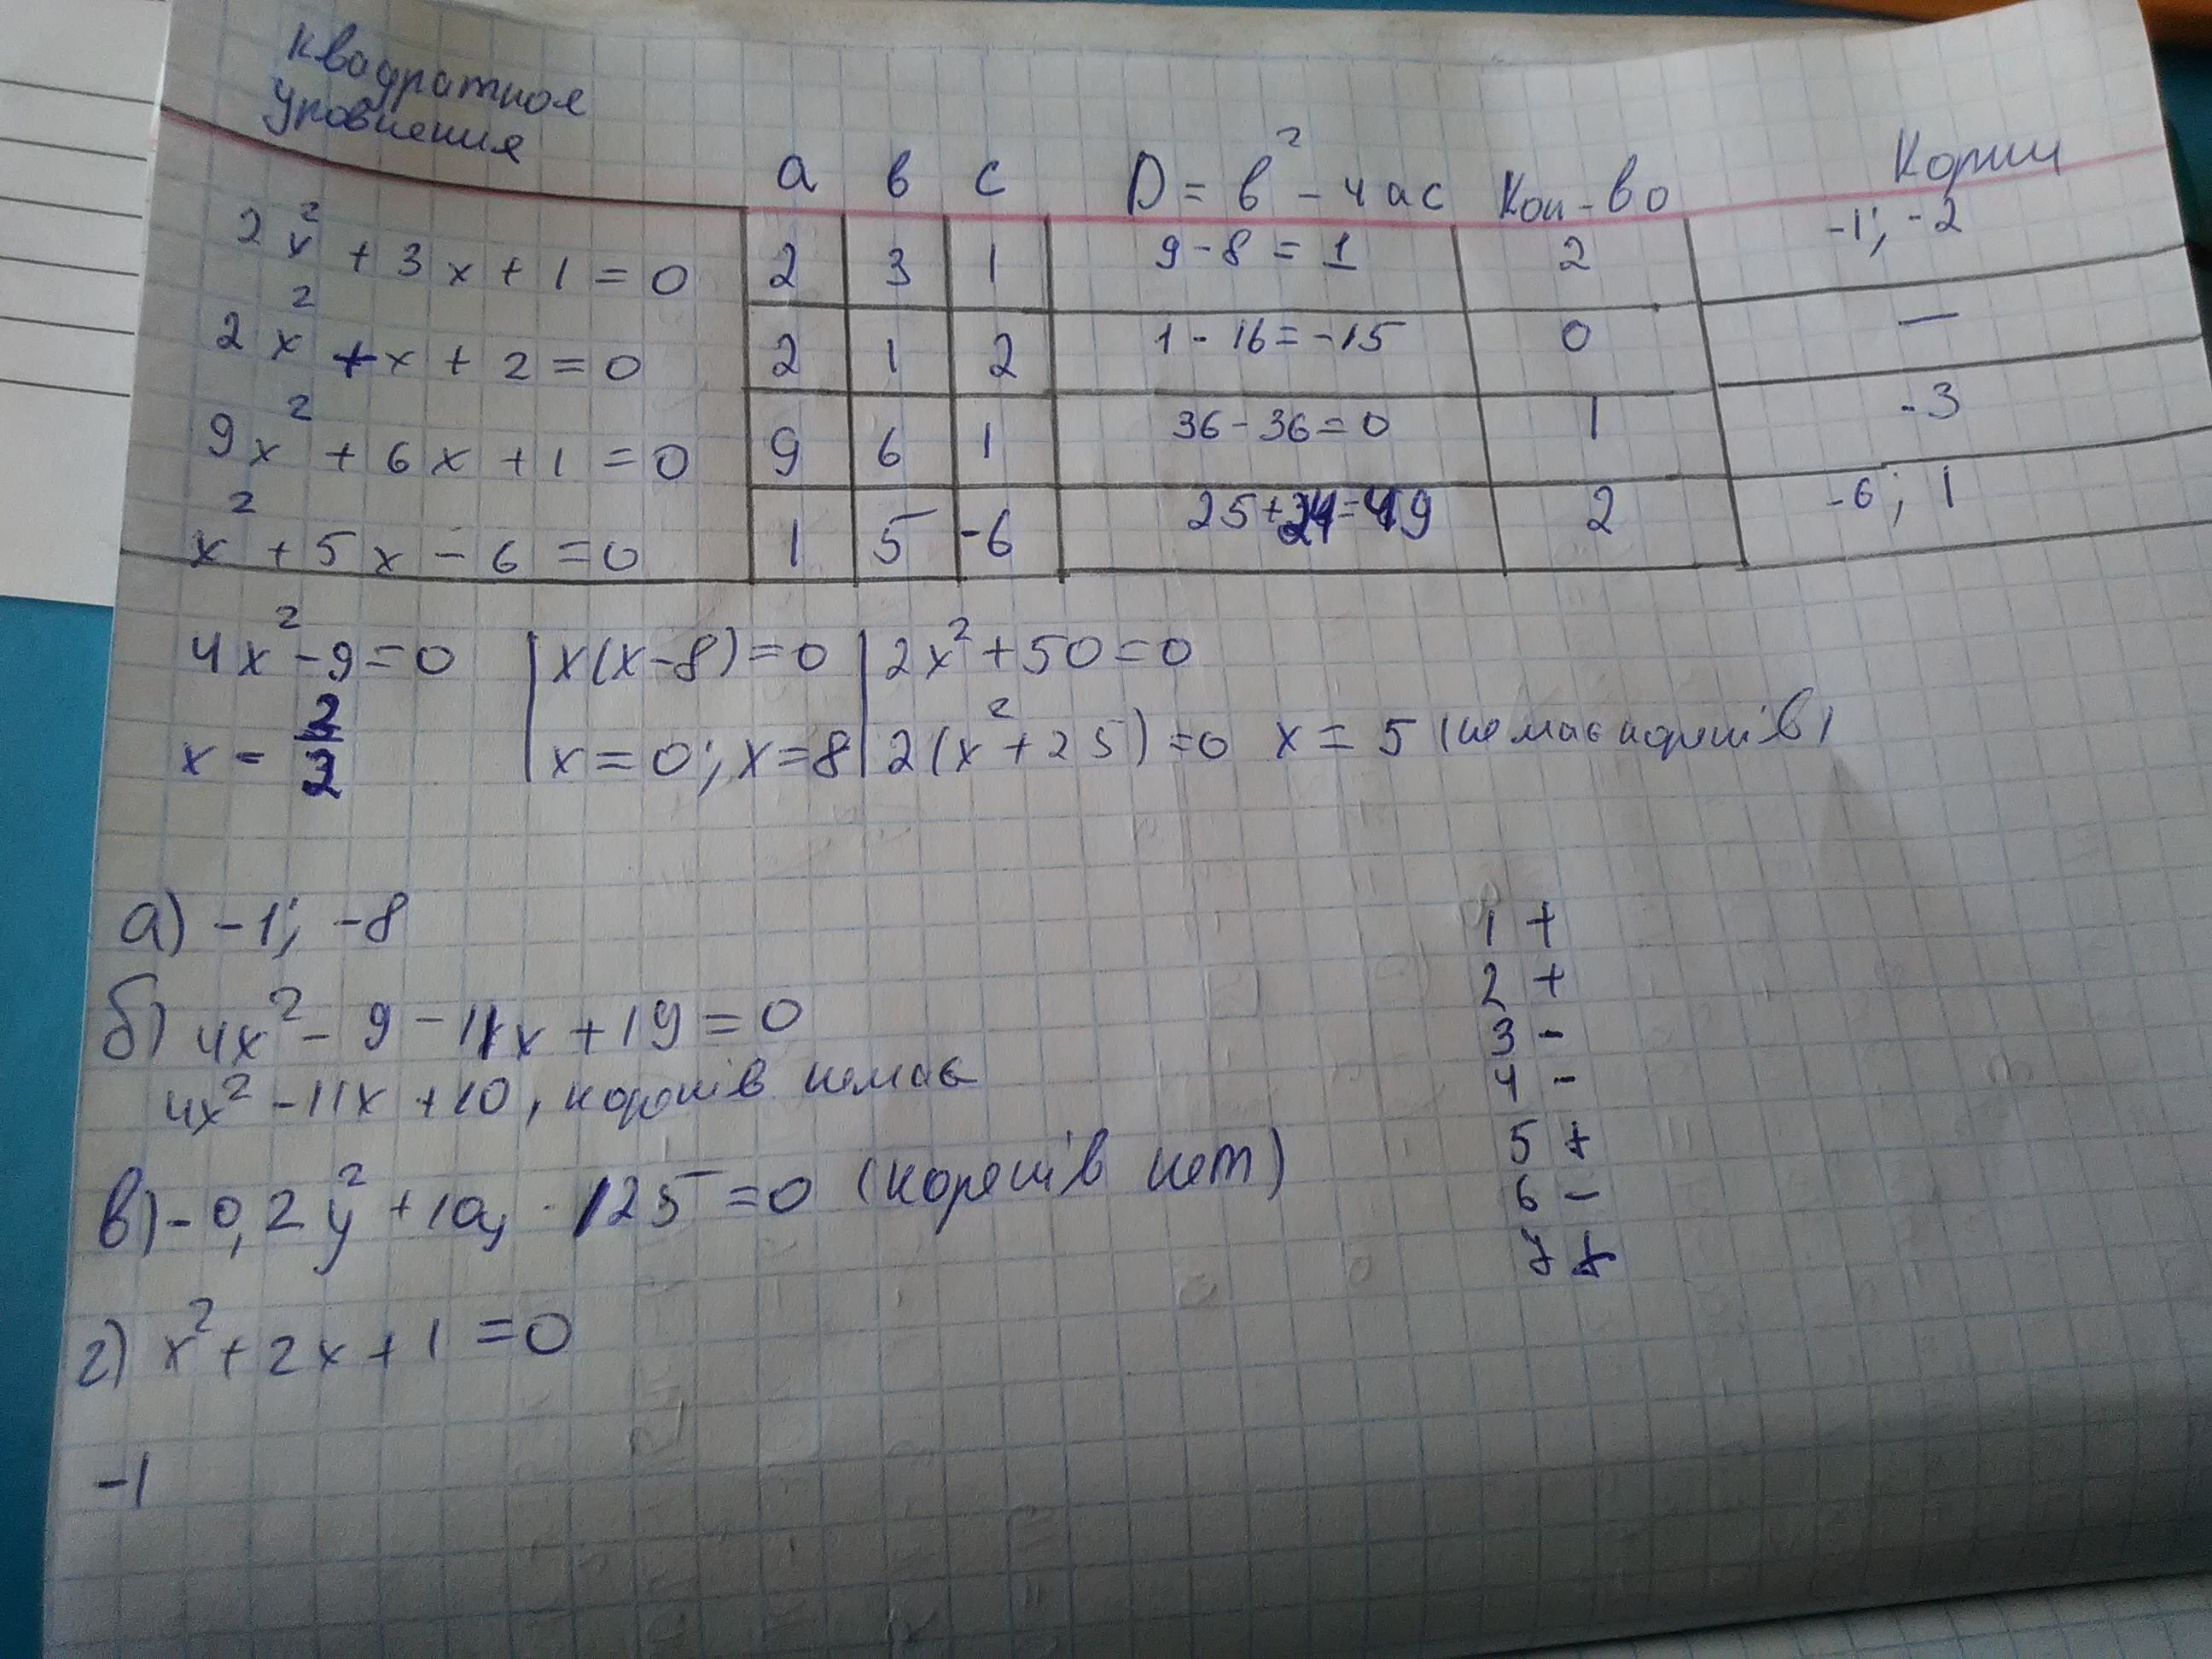 Квадратное
Уровнения
a в c D = в² - 4ac Кол-во Корни
2x² + 3x + 1 = 0 2 3 1 9 - 8 = 1 2 -1; -2
2x² + x + 2 = 0 2 1 2 1 - 16 = -15 0 —
9x² + 6x + 1 = 0 9 6 1 36 - 36 = 0 1 -3
x² + 5x - 6 = 0 1 5 -6 25 + 24 = 49 2 -6; 1
4x² - 9 = 0 | x(x-8) = 0 | 2x² + 50 = 0
x = 2/2 | x = 0; x = 8 | 2(x² + 25) = 0 x = 5 (немає коренів)
а) -1; -8
б) 4x² - 9 - 11x + 19 = 0
4x² - 11x + 10, коренів немає
в) -0,2y² + 10y - 125 = 0 (коренів нет)
г) x² + 2x + 1 = 0
-1
1 +
2 +
3 -
4 -
5 +
6 -
7 +